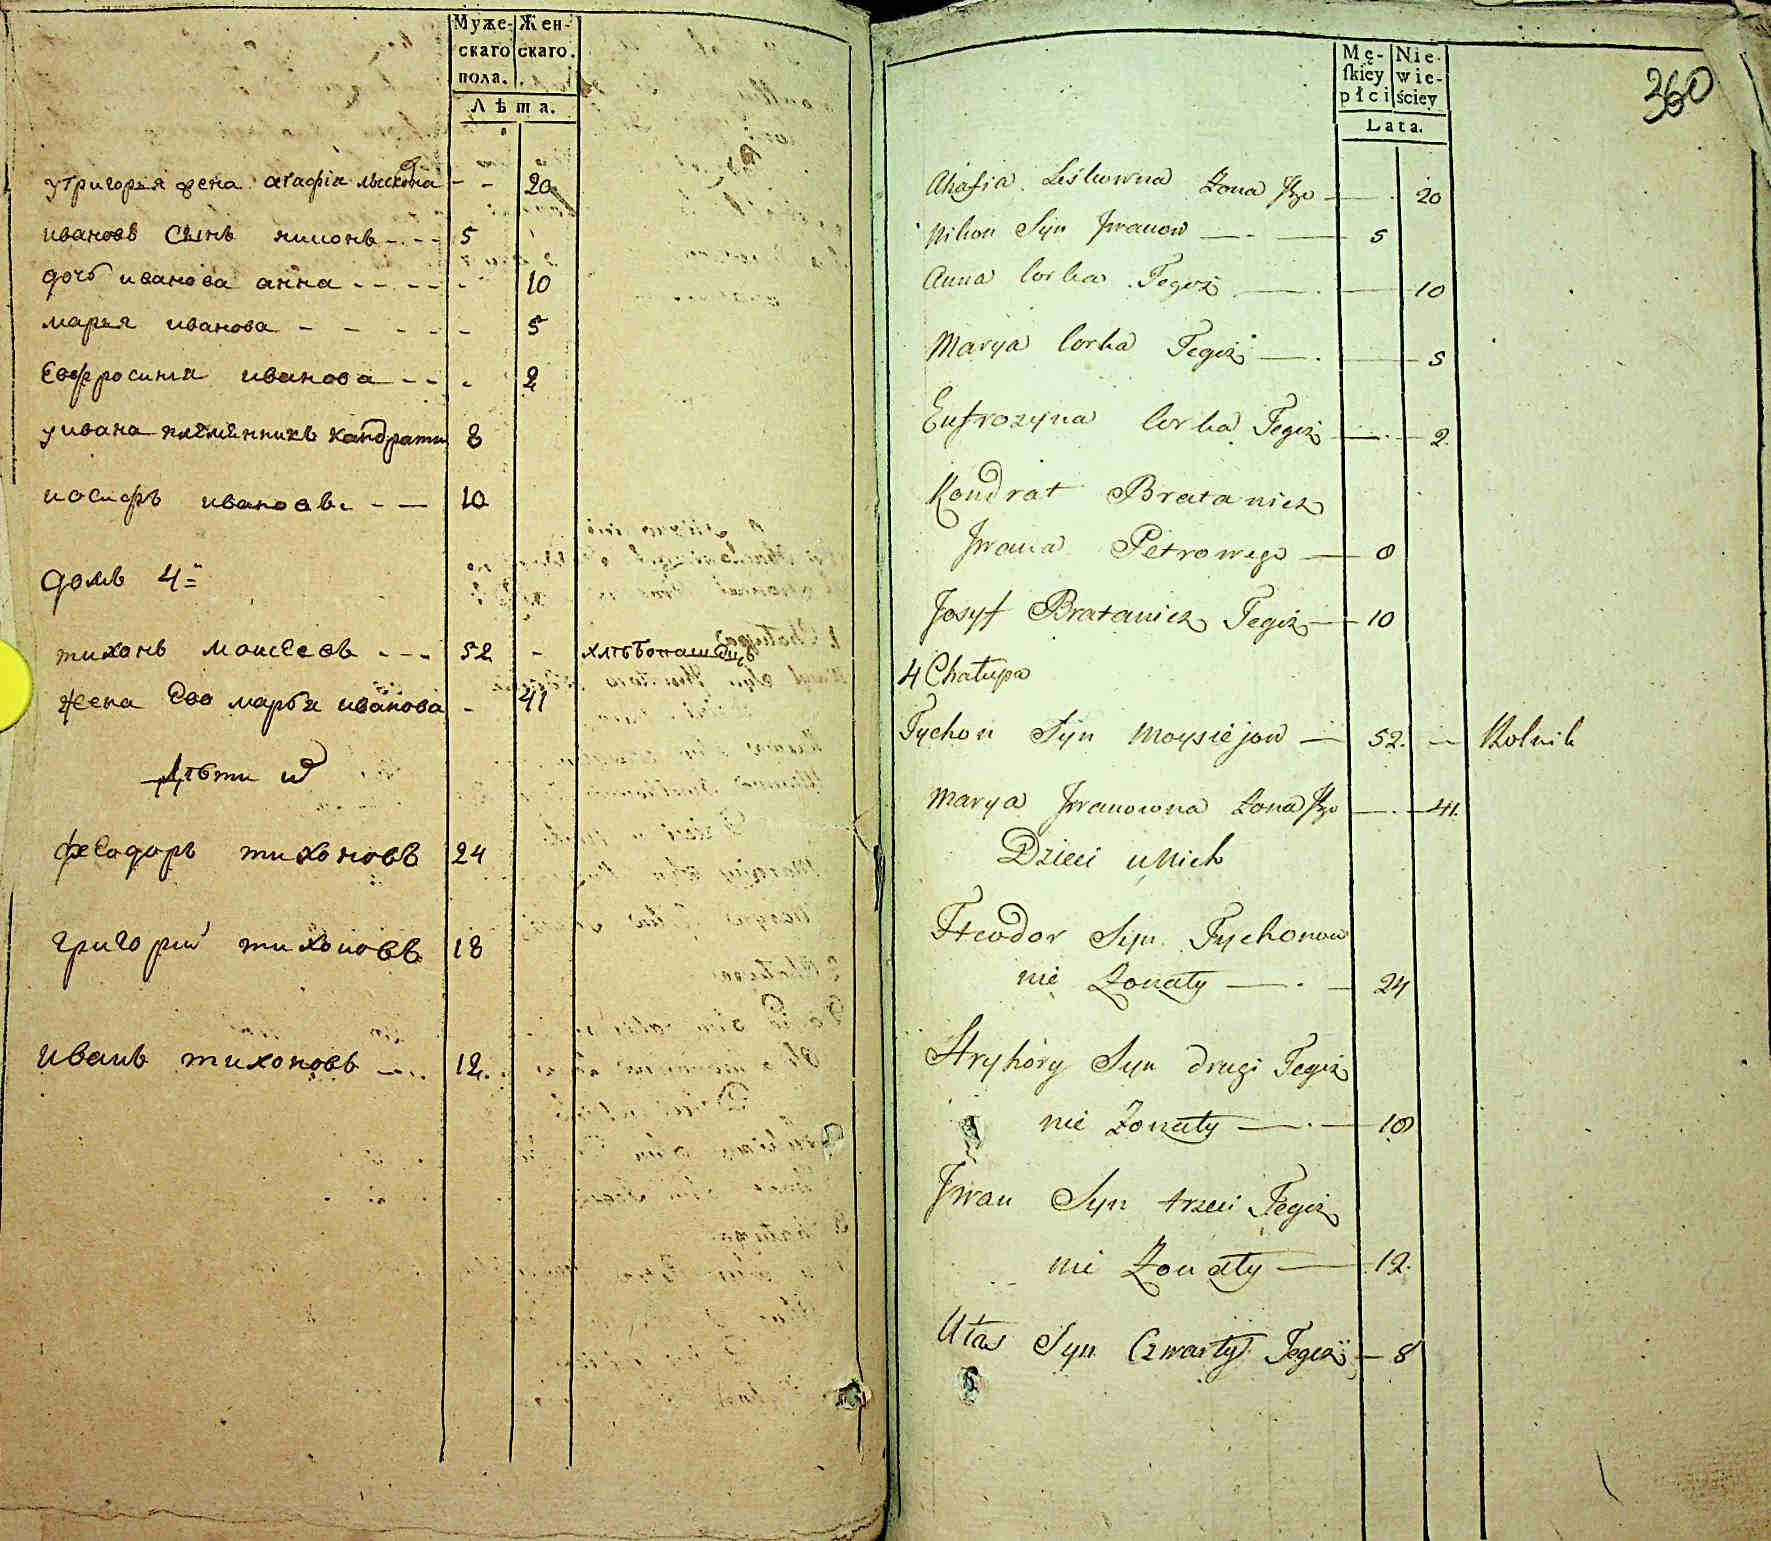 Муже- Жен-
скаго скаго.
пола.
Лѣта.
у григорья жена агафія лысковна - - 20
ивановъ сынъ никонъ - - - 5
дочь иванова анна - - - - - 10
марья иванова - - - - - 5
Евфросинія иванова - - - 2
у ивана племянникъ кандрати 8
иосифъ ивановъ - - 10
домъ 4й
тихонъ моисеевъ - - - 52 - хлѣбопашецъ
жена Ево марья иванова - 41
Дѣти их
феодоръ тихоновъ 24
григорий тихоновъ 18
иванъ тихоновъ - - 12.
360
Mę- Nie-
ſkiey wie-
płci ściey
Lata.
Ahafia Leśkowna Żona Jgo — 20
Nikon Syn Jwanow — — 5
Anna Corka Tegoż — — 10
Marya Corka Tegoż — — 5
Eufrozyna Corka Tegoż — — 2
Kondrat Bratanicz
Jwana Petrowego — 8
Jozyf Bratanicz Tegoż — 10
4 Chałupa
Tychon Syn Moysiejow — 52. — Rolnik
Marya Jwanowna Żona Jgo — 41.
Dzieci u Nich
Fteodor Syn Tychonow
nie Żonaty — 24
Hryhory Syn drugi Tegoż
nie Żonaty — 18
Jwan Syn trzeci Tegoż
nie Żonaty — 12.
Ułas Syn Czwarty Tegoż — 8